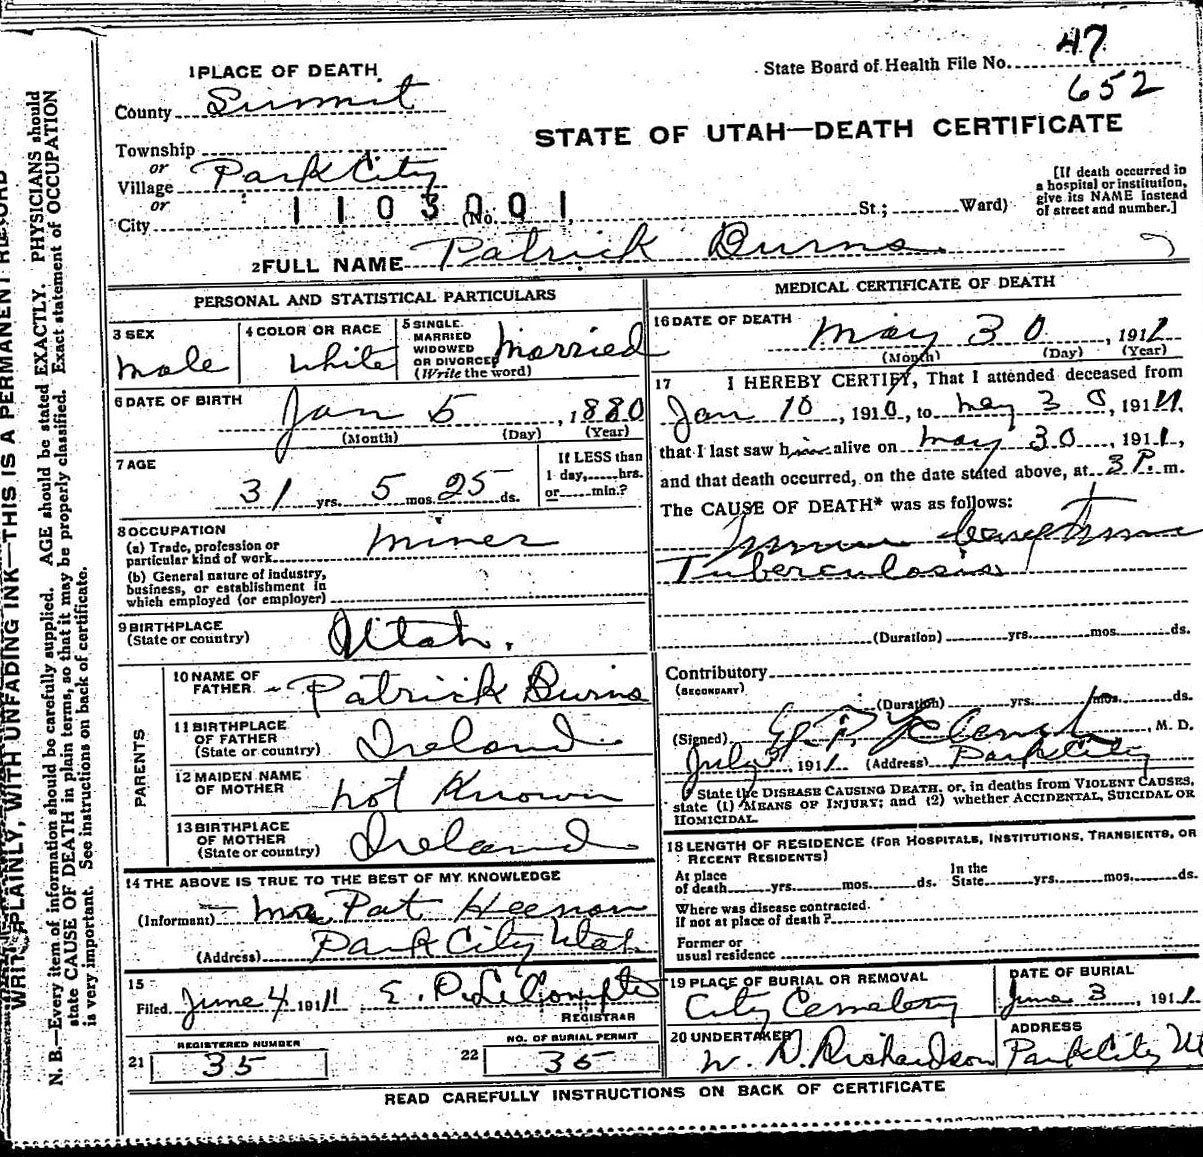 WRITE PLAINLY, WITH UNFADING INK—THIS IS A PERMANENT RECORD
N. B.—Every item of information should be carefully supplied. AGE should be stated EXACTLY. PHYSICIANS should
state CAUSE OF DEATH in plain terms, so that it may be properly classified. Exact statement of OCCUPATION
is very important. See instructions on back of certificate.
1 PLACE OF DEATH
State Board of Health File No. 47
652
County Summit
STATE OF UTAH—DEATH CERTIFICATE
Township
or
Village Park City
or
City
1103001
(No. St.; Ward)
[If death occurred in
a hospital or institution,
give its NAME instead
of street and number.]
2 FULL NAME Patrick Burns
PERSONAL AND STATISTICAL PARTICULARS
3 SEX
Male
4 COLOR OR RACE
White
5 SINGLE.
MARRIED
WIDOWED
OR DIVORCED
(Write the word)
Married
6 DATE OF BIRTH
Jan 5, 1880
(Month) (Day) (Year)
7 AGE
31 yrs. 5 mos. 25 ds.
If LESS than
1 day, hrs.
or min.?
8 OCCUPATION
(a) Trade, profession or
particular kind of work Miner
(b) General nature of industry,
business, or establishment in
which employed (or employer)
9 BIRTHPLACE
(State or country) Utah.
PARENTS
10 NAME OF
FATHER Patrick Burns
11 BIRTHPLACE
OF FATHER
(State or country) Ireland
12 MAIDEN NAME
OF MOTHER not Known
13 BIRTHPLACE
OF MOTHER
(State or country) Ireland
14 THE ABOVE IS TRUE TO THE BEST OF MY KNOWLEDGE
(Informant) Mrs Pat Heenan
(Address) Park City Utah
15
Filed June 4, 1911 E. D. LeCompte
REGISTRAR
21 REGISTERED NUMBER
35
22 NO. OF BURIAL PERMIT
35
MEDICAL CERTIFICATE OF DEATH
16 DATE OF DEATH May 30, 1911
(Month) (Day) (Year)
17 I HEREBY CERTIFY, That I attended deceased from
Jan 10, 1910, to May 30, 1911
that I last saw him alive on May 30, 1911,
and that death occurred, on the date stated above, at 3 P. m.
The CAUSE OF DEATH* was as follows:
Tuberculosis
(Duration) yrs. mos. ds.
Contributory
(SECONDARY)
(Duration) yrs. mos. ds.
(Signed) M. D.
July 1911 (Address) Park City
* State the DISEASE CAUSING DEATH, or, in deaths from VIOLENT CAUSES,
state (1) MEANS OF INJURY; and (2) whether ACCIDENTAL, SUICIDAL OR
HOMICIDAL.
18 LENGTH OF RESIDENCE (FOR HOSPITALS, INSTITUTIONS, TRANSIENTS, OR
RECENT RESIDENTS)
At place
of death yrs. mos. ds.
In the
State yrs. mos. ds.
Where was disease contracted.
if not at place of death?
Former or
usual residence
19 PLACE OF BURIAL OR REMOVAL
City Cemetery
DATE OF BURIAL
June 3, 1911
20 UNDERTAKER
W. D. Richardson
ADDRESS
Park City Ut
READ CAREFULLY INSTRUCTIONS ON BACK OF CERTIFICATE